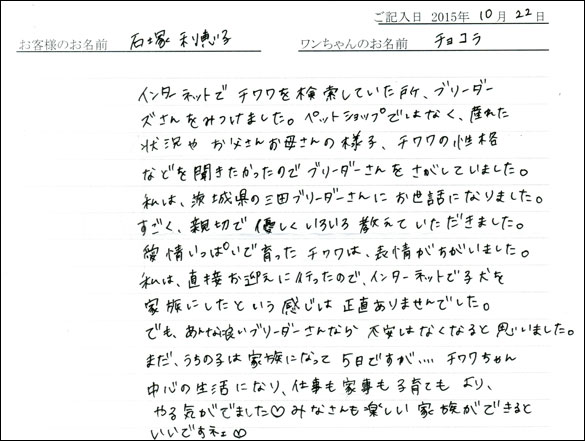 ご記入日 2015年 10月 22日
お客様のお名前 石塚 利恵子 ワンちゃんのお名前 チョコラ
インターネットで チワワを検索していた所、ブリーダー
ズさんをみつけました。ペットショップではなく、産れた
状況や お父さんお母さんの様子、チワワの性格
などを聞きたかったのでブリーダーさんをさがしていました。
私は、茨城県の三田ブリーダーさんにお世話になりました。
すごく、親切で優しくいろいろ教えていただきました。
愛情いっぱいで育ったチワワは、表情がちがいました。
私は、直接お迎えに行ったので、インターネットで子犬を
家族にしたという感じは正直ありませんでした。
でも、あんな良いブリーダーさんなら 不安はなくなると思いました。
まだ、うちの子は家族になって5日ですが.... チワワちゃん
中心の生活になり、仕事も家事も子育ても より、
やる気がでました♡ みなさんも楽しい家族ができると
いいですネェ♡